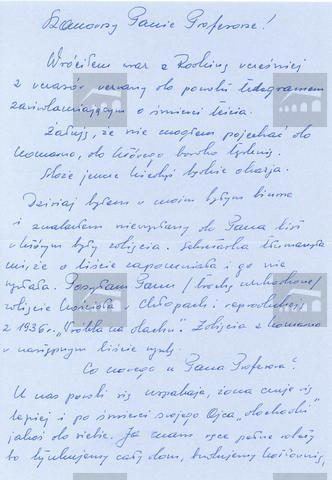 Szanowny Panie Profesorze!
Wróciłem wraz z Rodziną wcześniej
z wczasów wezwany do powrotu telegramem
zawiadamiającym o śmierci teścia.
Żałuję, że nie mogłem pojechać do
Komarno, do którego bardzo tęsknię.
Może jeszcze kiedyś będzie okazja.
Dzisiaj byłem w moim byłym biurze
i znalazłem niewysłany do Pana list
w którym były zdjęcia. Sekretarka tłumaczyła
mi, że o liście zapomniała i go nie
wysłała. Posyłam Panu /trochę uszkodzone/
zdjęcie kościoła w Chłopach i reprodukcję
z 1936 r. „ na dachu". Zdjęcia z Komarno
w następnym liście wyślę.
Co nowego u Pana Profesora?
U nas powoli się uspakaja, żona czuje się
lepiej i po śmierci swojego Ojca „dochodzi"
jakoś do siebie. Ja mam ręce pełne roboty
bo tynkujemy cały dom,